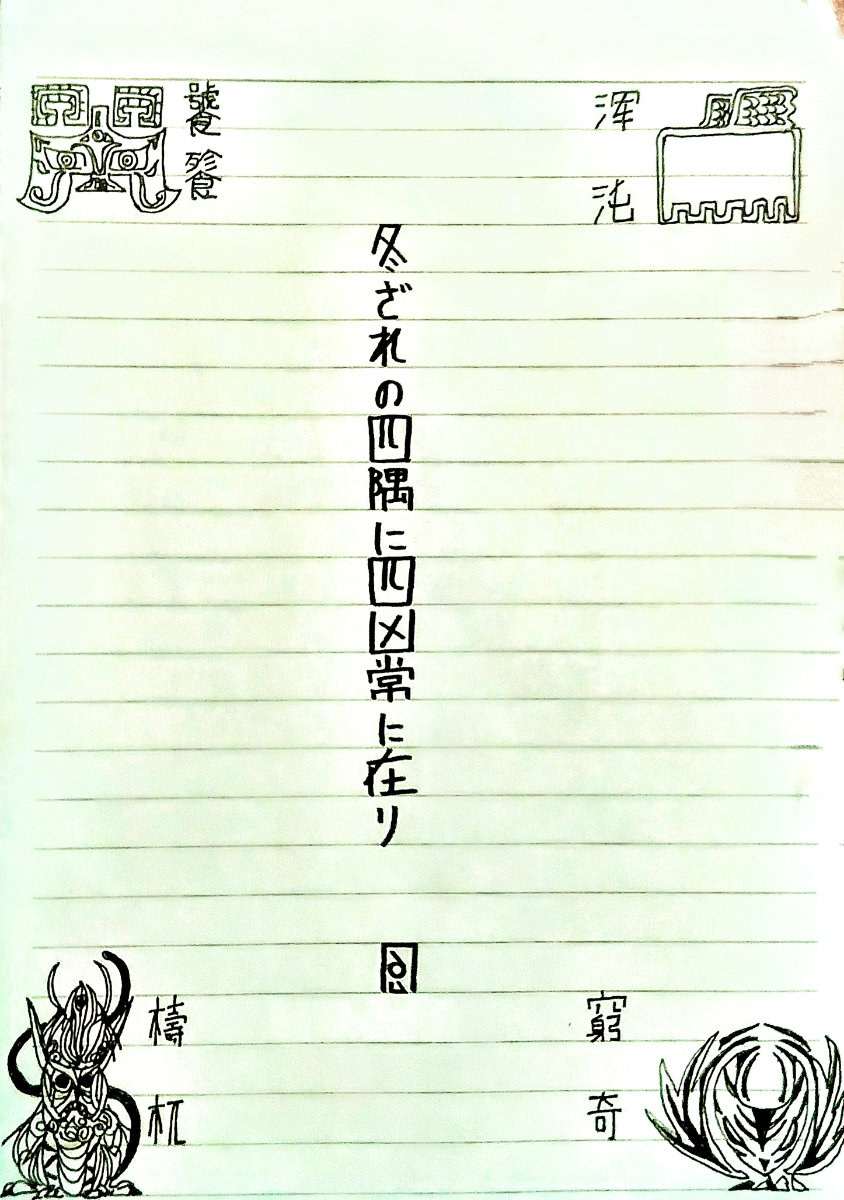 渾
沌
冬ざれの四隅に四凶常に在り
饕
餮
窮
奇
檮
杌